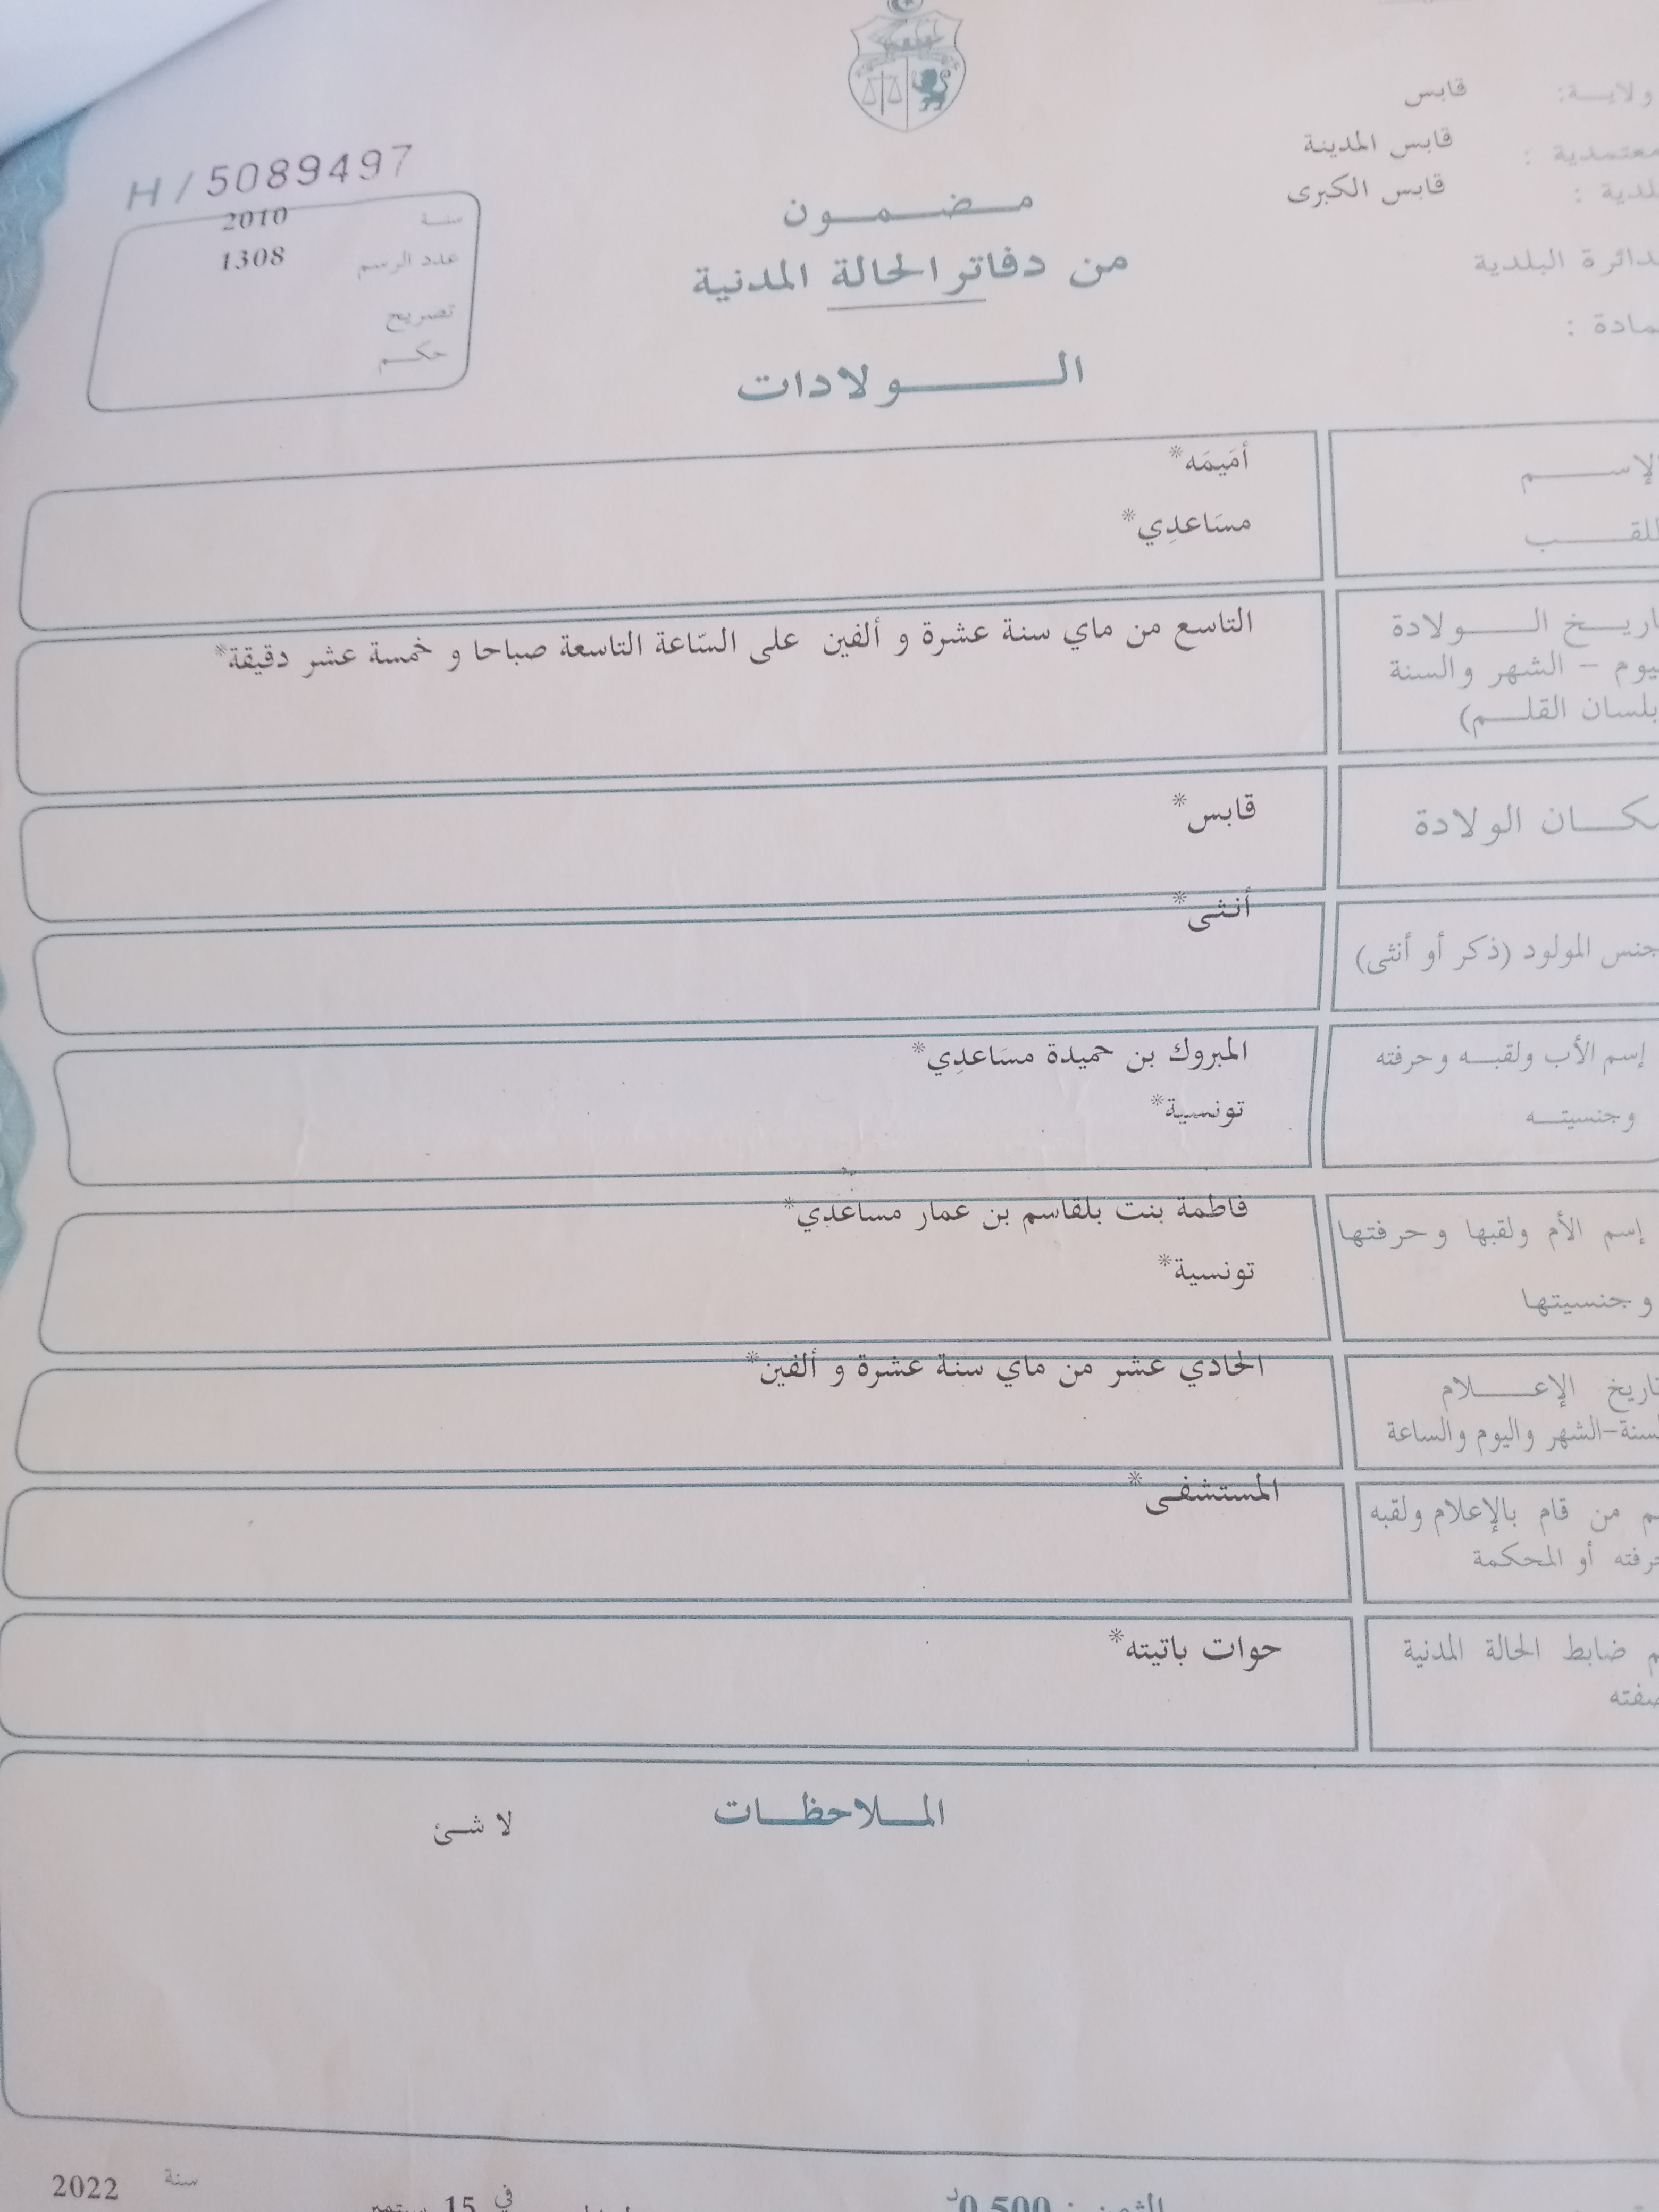 ولاية: قابس
معتمدية : قابس المدينة
بلدية : قابس الكبرى
الدائرة البلدية
عمادة :
مضمون
من دفاتر الحالة المدنية
الولادات
H / 5089497
سنة 2010
عدد الرسم 1308
تصريح
حكم
الإسم أمَيمَه*
اللقب مسَاعدِي*
تاريخ الولادة
اليوم - الشهر والسنة
بلسان القلم)
التاسع من ماي سنة عشرة و ألفين على السّاعة التاسعة صباحا و خمسة عشر دقيقة*
مكان الولادة قابس*
جنس المولود (ذكر أو أنثى) أنثى*
إسم الأب ولقبه وحرفته المبروك بن حميدة مسَاعدِي*
وجنسيته تونسية*
إسم الأم ولقبها وحرفتها فاطمة بنت بلقاسم بن عمار مساعدي*
وجنسيتها تونسية*
تاريخ الإعلام الحادي عشر من ماي سنة عشرة و ألفين*
السنة-الشهر واليوم والساعة
من قام بالإعلام ولقبه المستشفى*
حرفته أو المحكمة
ضابط الحالة المدنية حوات باتيته*
صفته
الملاحظات
لا شئ
في 15 سبتمبر سنة 2022
الثمن : 0,500 د